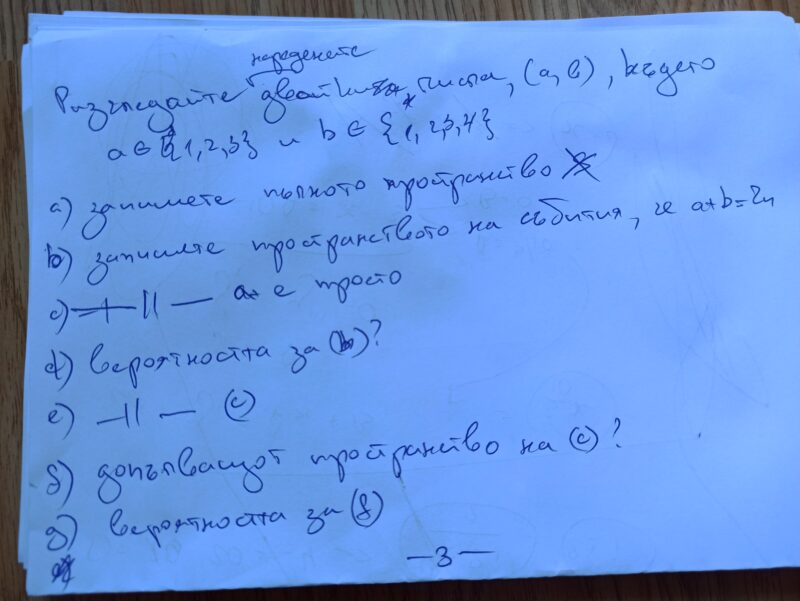 наредените
Разгледайте двойки числа, (a, b), където
a ∈ {1, 2, 3} и b ∈ {1, 2, 3, 4}
a) запишете пълното пространство
b) запишете пространството на събития, че a+b=2n
c) —||— a е просто
d) вероятността за (b)?
e) —||— (c)
f) допълващот пространство на (c)?
g) вероятността за (f)
—3—